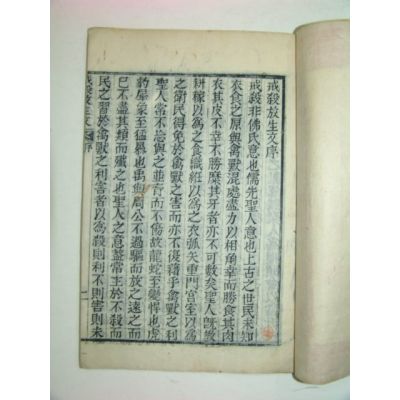 戒殺放生文序
戒殺非佛氏意也儒先聖人意也上古之世民未知
衣食之原與禽獸混處盡力以相角幸而勝食其肉
衣其皮不幸不勝糜其牙者亦不可數矣聖人旣敎
耕稼以爲之食識絍以爲之衣弧矢重門宮室以爲
之衛民得免於禽獸之害而亦不復藉乎禽獸之利
聖人當不忍與之並杳而不傷故龍蛇至變悍也虎
豹犀象至猛暴也禹周公不過驅而放之遠之而
已不盡其類而殲之也聖人之意蓋常主於不殺而
民之習於禽獸之利害者以爲殺則利不則害則未
戒殺放生文 序 一